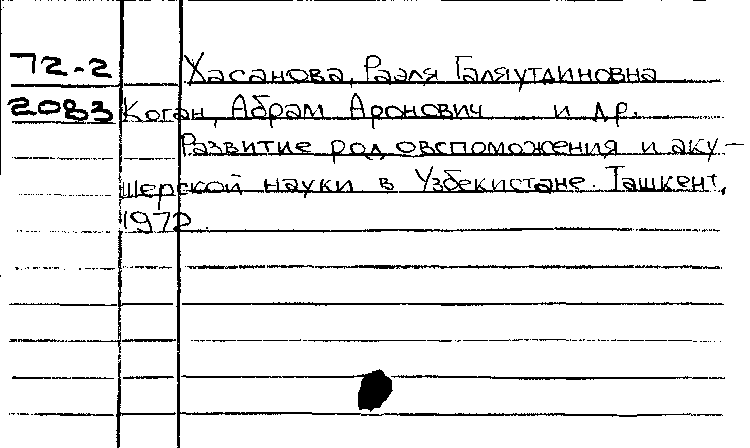 72-2 Хасанова, Раэля Галяутдиновна
2083 Коган, Абрам Аронович и др.
Развитие родовспоможения и аку-
шерской науки в Узбекистане. Ташкент,
1972.